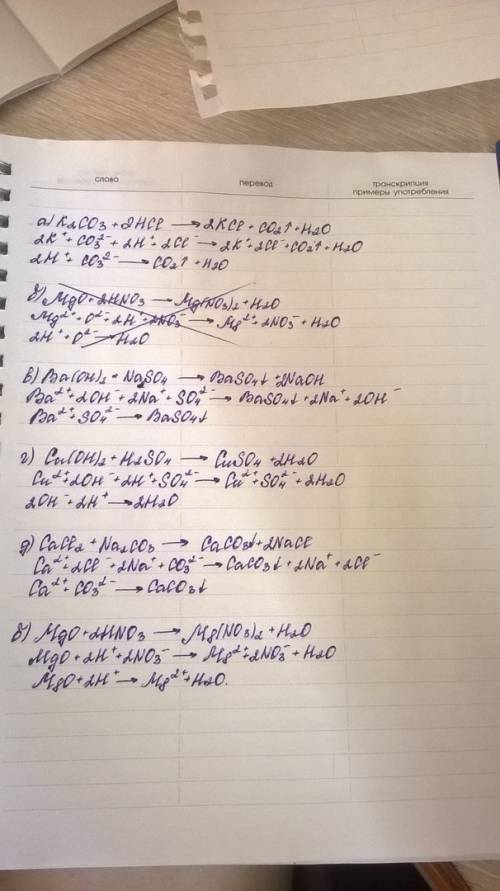 слово перевод транскрипция
примеры употребления
а) K2CO3 + 2HCl → 2KCl + CO2↑ + H2O
2K⁺ + CO3²⁻ + 2H⁺ + 2Cl⁻ → 2K⁺ + 2Cl⁻ + CO2↑ + H2O
2H⁺ + CO3²⁻ → CO2↑ + H2O
б) MgO + 2HNO3 → Mg(NO3)2 + H2O
Mg²⁺ + O²⁻ + 2H⁺ + 2NO3⁻ → Mg²⁺ + 2NO3⁻ + H2O
2H⁺ + O²⁻ → H2O
в) Ba(OH)2 + Na2SO4 → BaSO4↓ + 2NaOH
Ba²⁺ + 2OH⁻ + 2Na⁺ + SO4²⁻ → BaSO4↓ + 2Na⁺ + 2OH⁻
Ba²⁺ + SO4²⁻ → BaSO4↓
г) Cu(OH)2 + H2SO4 → CuSO4 + 2H2O
Cu²⁺ + 2OH⁻ + 2H⁺ + SO4²⁻ → Cu²⁺ + SO4²⁻ + 2H2O
2OH⁻ + 2H⁺ → 2H2O
д) CaCl2 + Na2CO3 → CaCO3↓ + 2NaCl
Ca²⁺ + 2Cl⁻ + 2Na⁺ + CO3²⁻ → CaCO3↓ + 2Na⁺ + 2Cl⁻
Ca²⁺ + CO3²⁻ → CaCO3↓
б) MgO + 2HNO3 → Mg(NO3)2 + H2O
MgO + 2H⁺ + 2NO3⁻ → Mg²⁺ + 2NO3⁻ + H2O
MgO + 2H⁺ → Mg²⁺ + H2O.